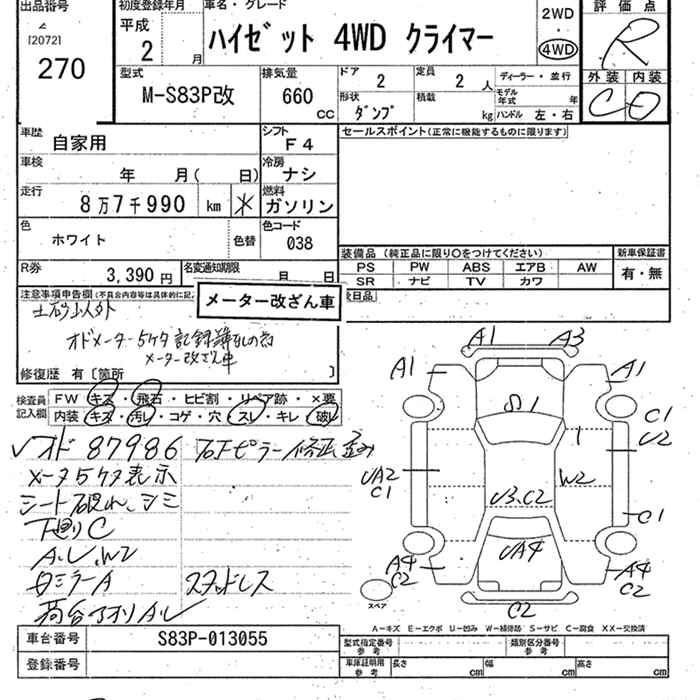 出品番号
120721
270
初度登録年月
平成
2 月
車名・グレード
ハイゼット 4WD クライマー
2WD
4WD
評価点
R
外装 内装
C D
型式
M-S83P改
排気量
660 CC
ドア
2
形状
ダンプ
定員
2 人
積載
kg
ディーラー・並行
モデル年式 年
ハンドル 左・右
車歴
自家用
シフト
F4
セールスポイント(正常に機能するものに限ります)
車検
年 月( 日)
冷房
ナシ
走行
8万7千990 km
燃料
ガソリン
色
ホワイト
色替
色コード
038
装備品 (純正品に限り○をつけてください)
PS PW ABS エアB AW
SR ナビ TV カワ
新車保証書
有・無
R券
3,390 円
名変通知期限
月 日
メーター改ざん車
注意事項申告欄
土砂以外
オドメーター5ケタ記録簿
メーター改ざん車
修復歴 有〔箇所 〕
検査員記入欄
FW キズ・飛石・ヒビ割・リペア跡・×要
内装 キズ・汚れ・コゲ・穴・スレ・キレ・破レ
オド 87986
メータ5ケタ表示
シート破れ、シミ
下廻りC
A.U.W2
スタッドレス
A1 A3
A1 A1
S1
C1
U2
UA2
C1
W2
U3.C2
C1
UA4
A4
C2
A4
C2
C2
スペア
A－キズ E－エクボ U－凹み W－補修跡 S－サビ C－腐食 XX－交換済
車台番号 S83P-013055
登録番号
型式指定番号 参考
類別区分番号 参考
車庫証明用 参考 長さ cm 幅 cm 高さ cm